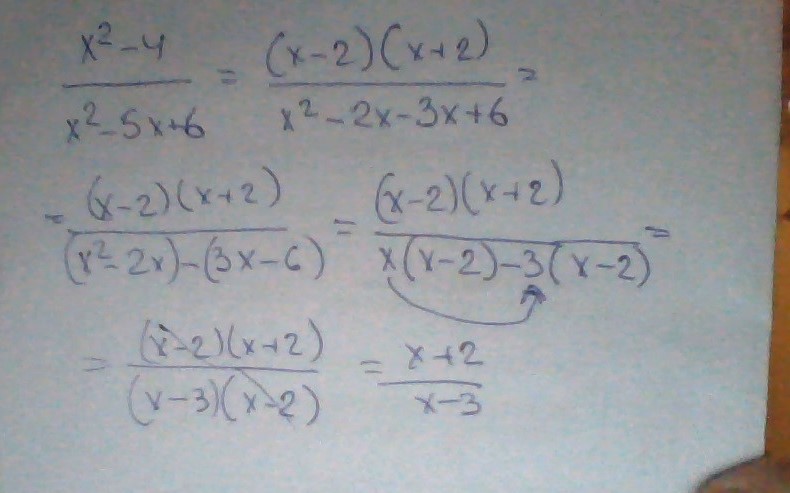 x²-4 / x²-5x+6 = (x-2)(x+2) / x²-2x-3x+6 =
= (x-2)(x+2) / (x²-2x)-(3x-6) = (x-2)(x+2) / x(x-2)-3(x-2) =
= (x-2)(x+2) / (x-3)(x-2) = x+2 / x-3